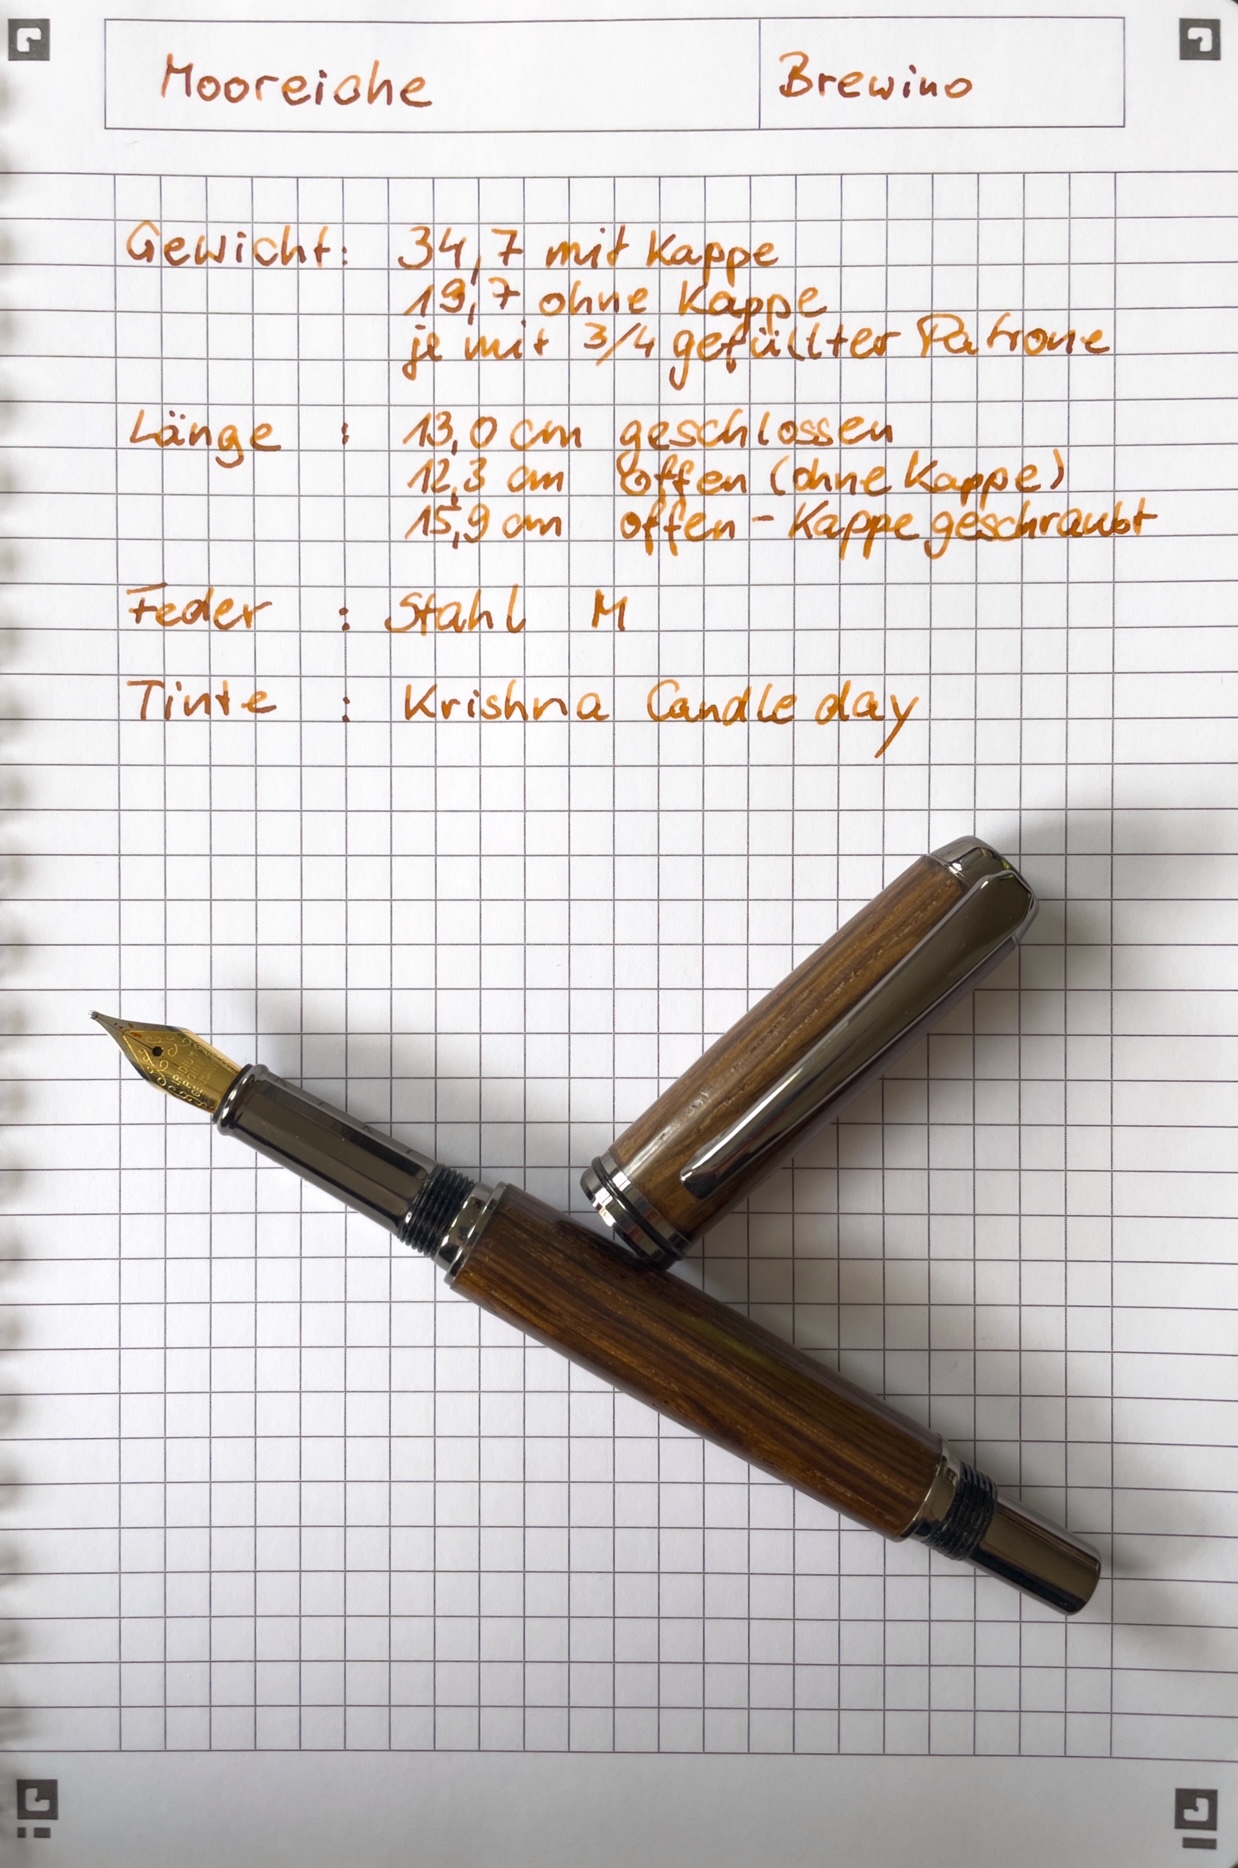 Mooreiche
Brewino
Gewicht: 34,7 mit Kappe
19,7 ohne Kappe
je mit 3/4 gefüllter Patrone
Länge : 13,0 cm geschlossen
12,3 cm offen (ohne Kappe)
15,9 cm offen - Kappe geschraubt
Feder : Stahl M
Tinte : Krishna Candle day